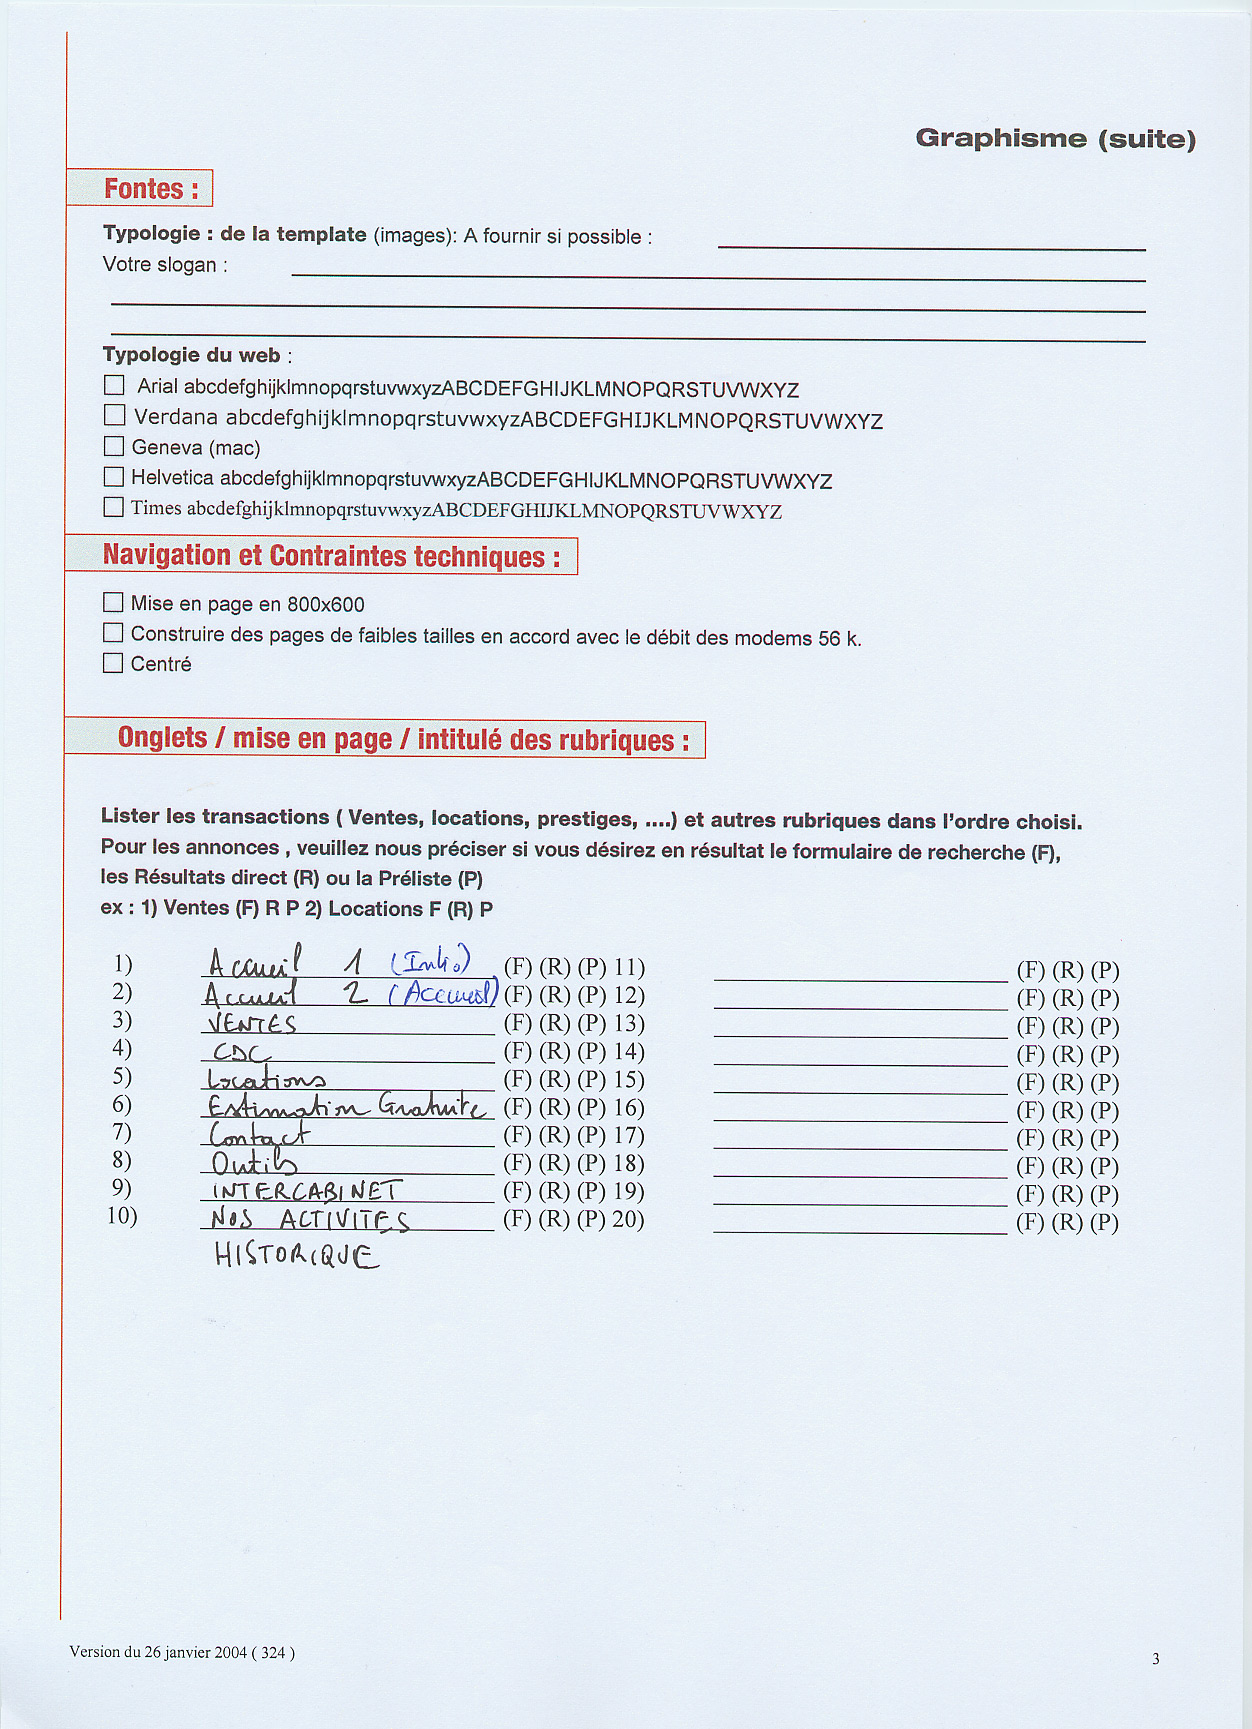 Graphisme (suite)
Fontes :
Typologie : de la template (images): A fournir si possible :
Votre slogan :
Typologie du web :
Arial abcdefghijklmnopqrstuvwxyzABCDEFGHIJKLMNOPQRSTUVWXYZ
Verdana abcdefghijklmnopqrstuvwxyzABCDEFGHIJKLMNOPQRSTUVWXYZ
Geneva (mac)
Helvetica abcdefghijklmnopqrstuvwxyzABCDEFGHIJKLMNOPQRSTUVWXYZ
Times abcdefghijklmnopqrstuvwxyzABCDEFGHIJKLMNOPQRSTUVWXYZ
Navigation et Contraintes techniques :
Mise en page en 800x600
Construire des pages de faibles tailles en accord avec le débit des modems 56 k.
Centré
Onglets / mise en page / intitulé des rubriques :
Lister les transactions ( Ventes, locations, prestiges, ....) et autres rubriques dans l'ordre choisi.
Pour les annonces , veuillez nous préciser si vous désirez en résultat le formulaire de recherche (F),
les Résultats direct (R) ou la Préliste (P)
ex : 1) Ventes (F) R P 2) Locations F (R) P
1) Accueil 1 (Intro) (F) (R) (P) 11) (F) (R) (P)
2) Accueil 2 (Accueil) (F) (R) (P) 12) (F) (R) (P)
3) VENTES (F) (R) (P) 13) (F) (R) (P)
4) CDC (F) (R) (P) 14) (F) (R) (P)
5) Locations (F) (R) (P) 15) (F) (R) (P)
6) Estimation Gratuite (F) (R) (P) 16) (F) (R) (P)
7) Contact (F) (R) (P) 17) (F) (R) (P)
8) Outils (F) (R) (P) 18) (F) (R) (P)
9) INTERCABINET (F) (R) (P) 19) (F) (R) (P)
10) NOS ACTIVITES (F) (R) (P) 20) (F) (R) (P)
HISTORIQUE
Version du 26 janvier 2004 ( 324 )
3